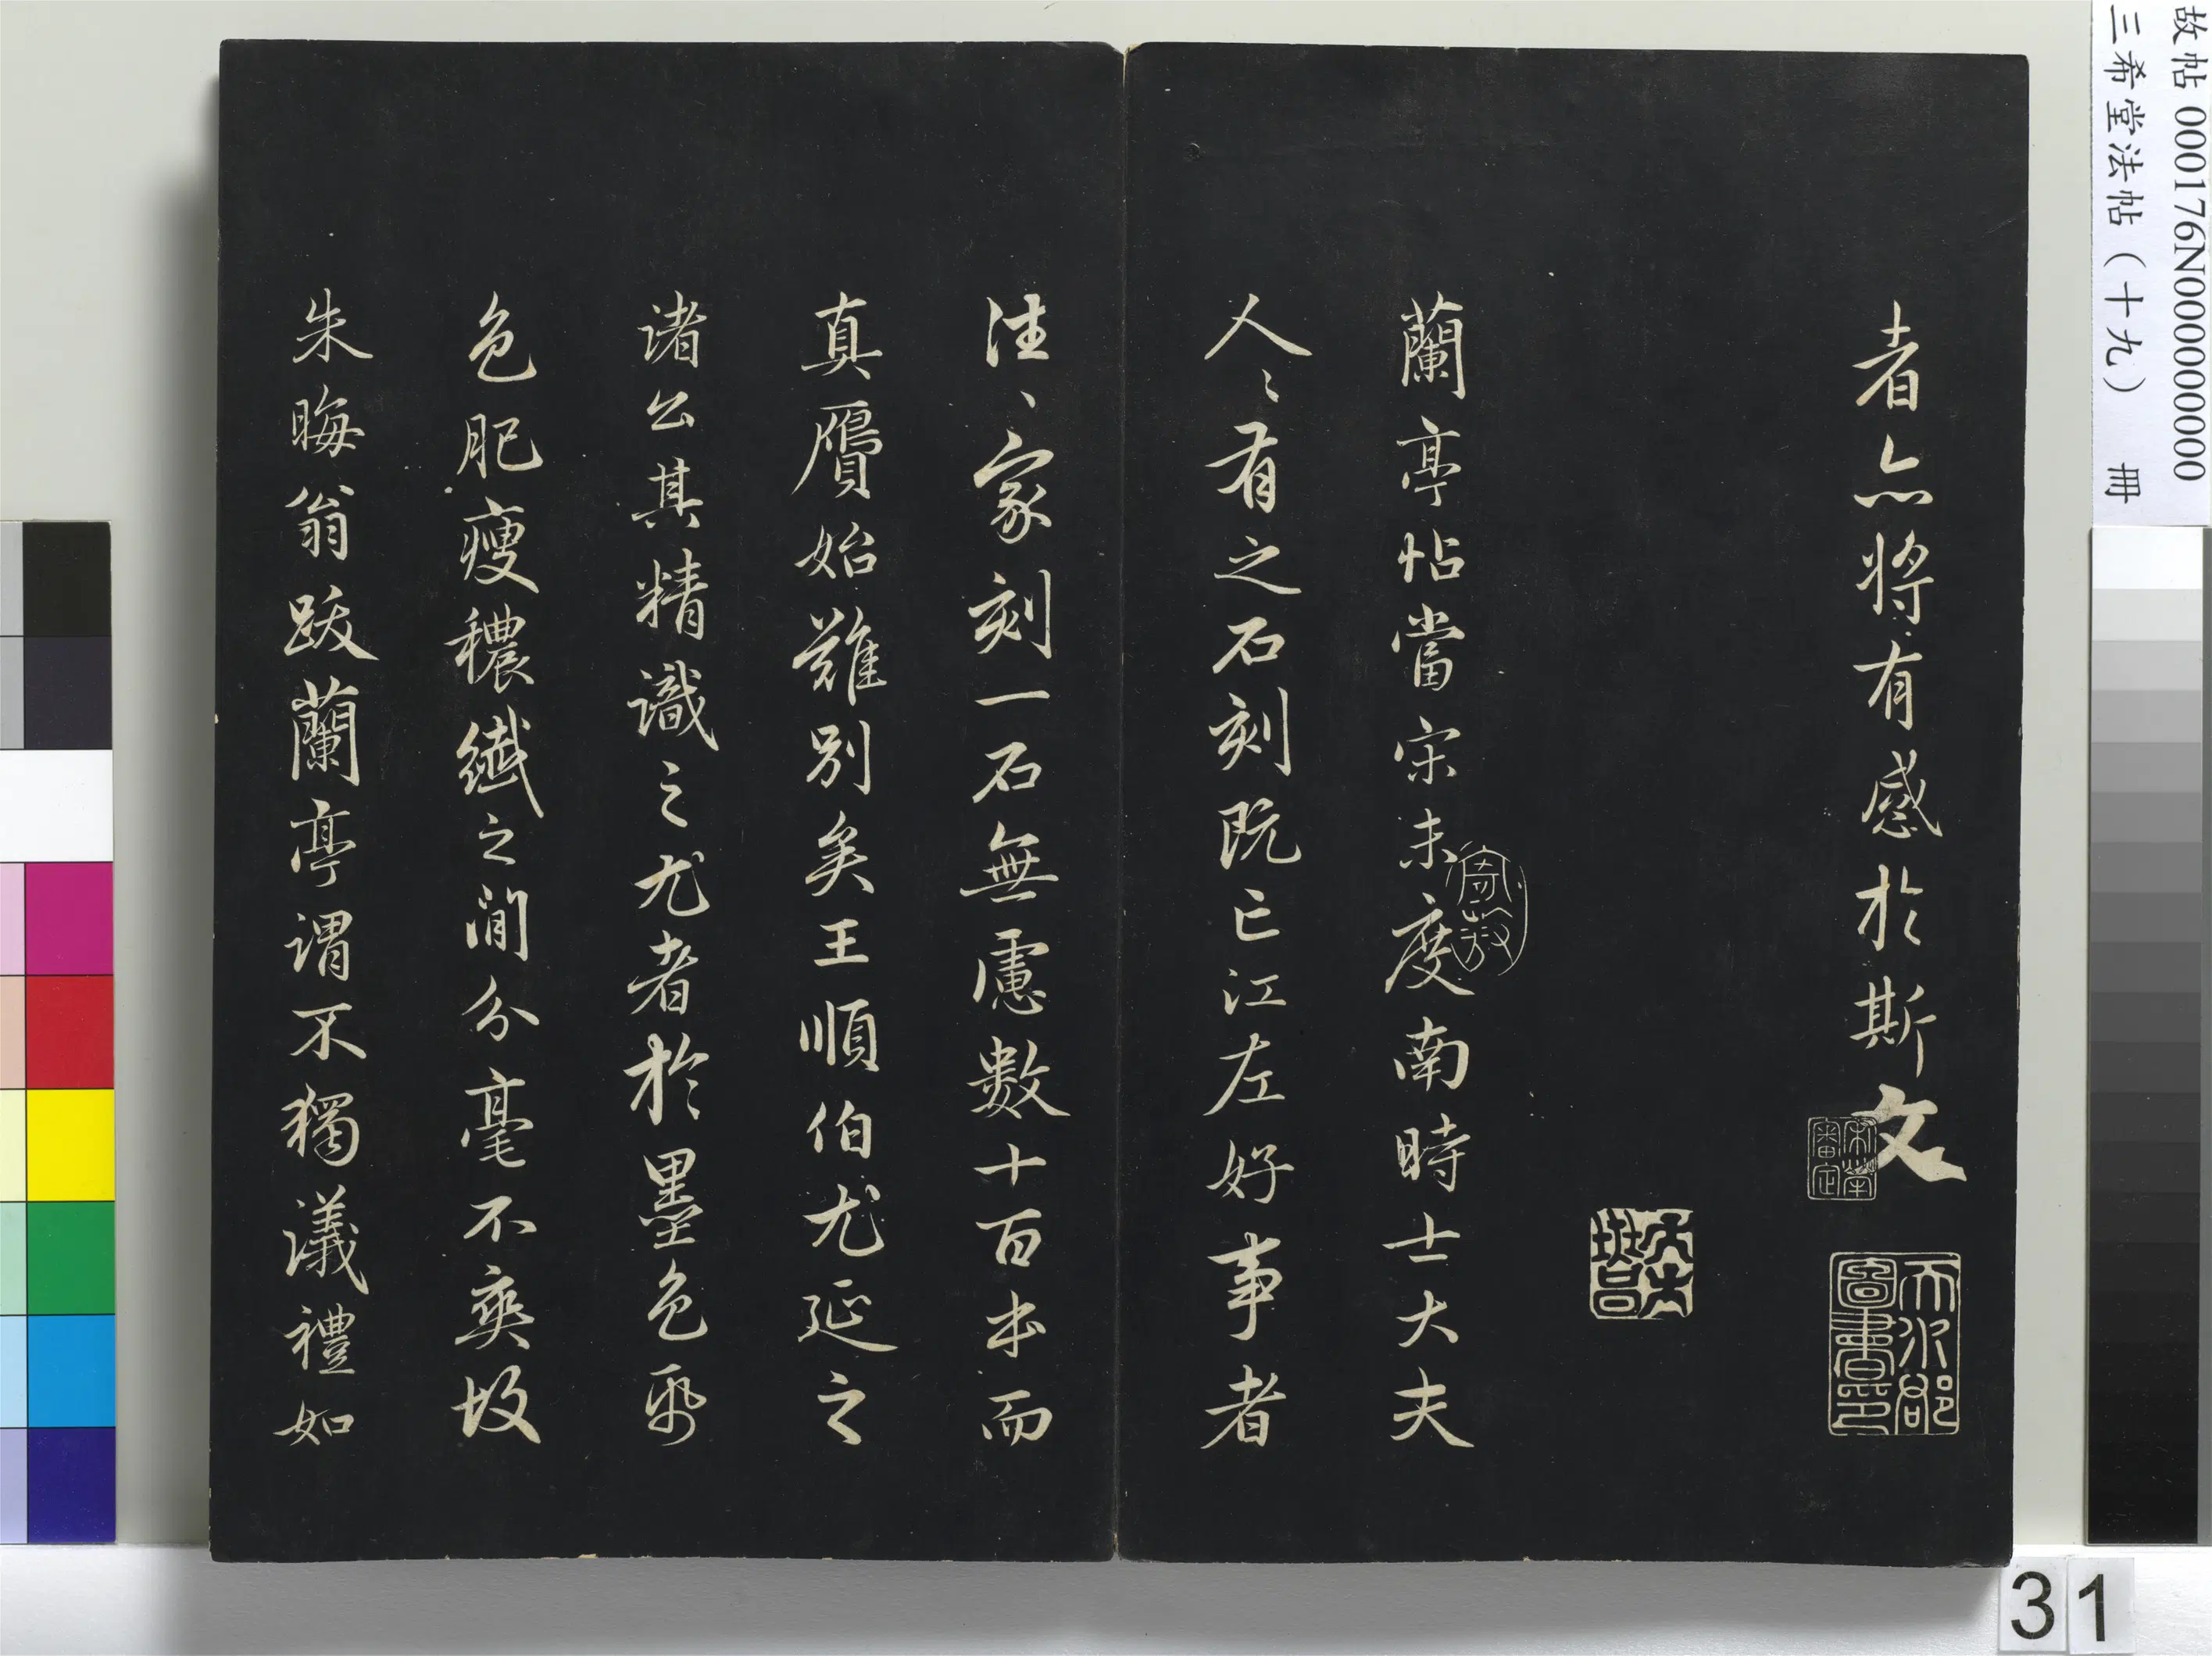 故帖 000176N000000000
三希堂法帖（十九） 冊
者亦將有感於斯文
蘭亭帖當宋未度南時士大夫
人〻有之石刻既亡江左好事者
往〻家刻一石無慮數十百本而
真贗始難別矣王順伯尤延之
諸公其精識之尤者於墨色紙
色肥瘦穠纖之間分毫不爽故
朱晦翁跋蘭亭謂不獨議禮如
天水郡
圖書印
31